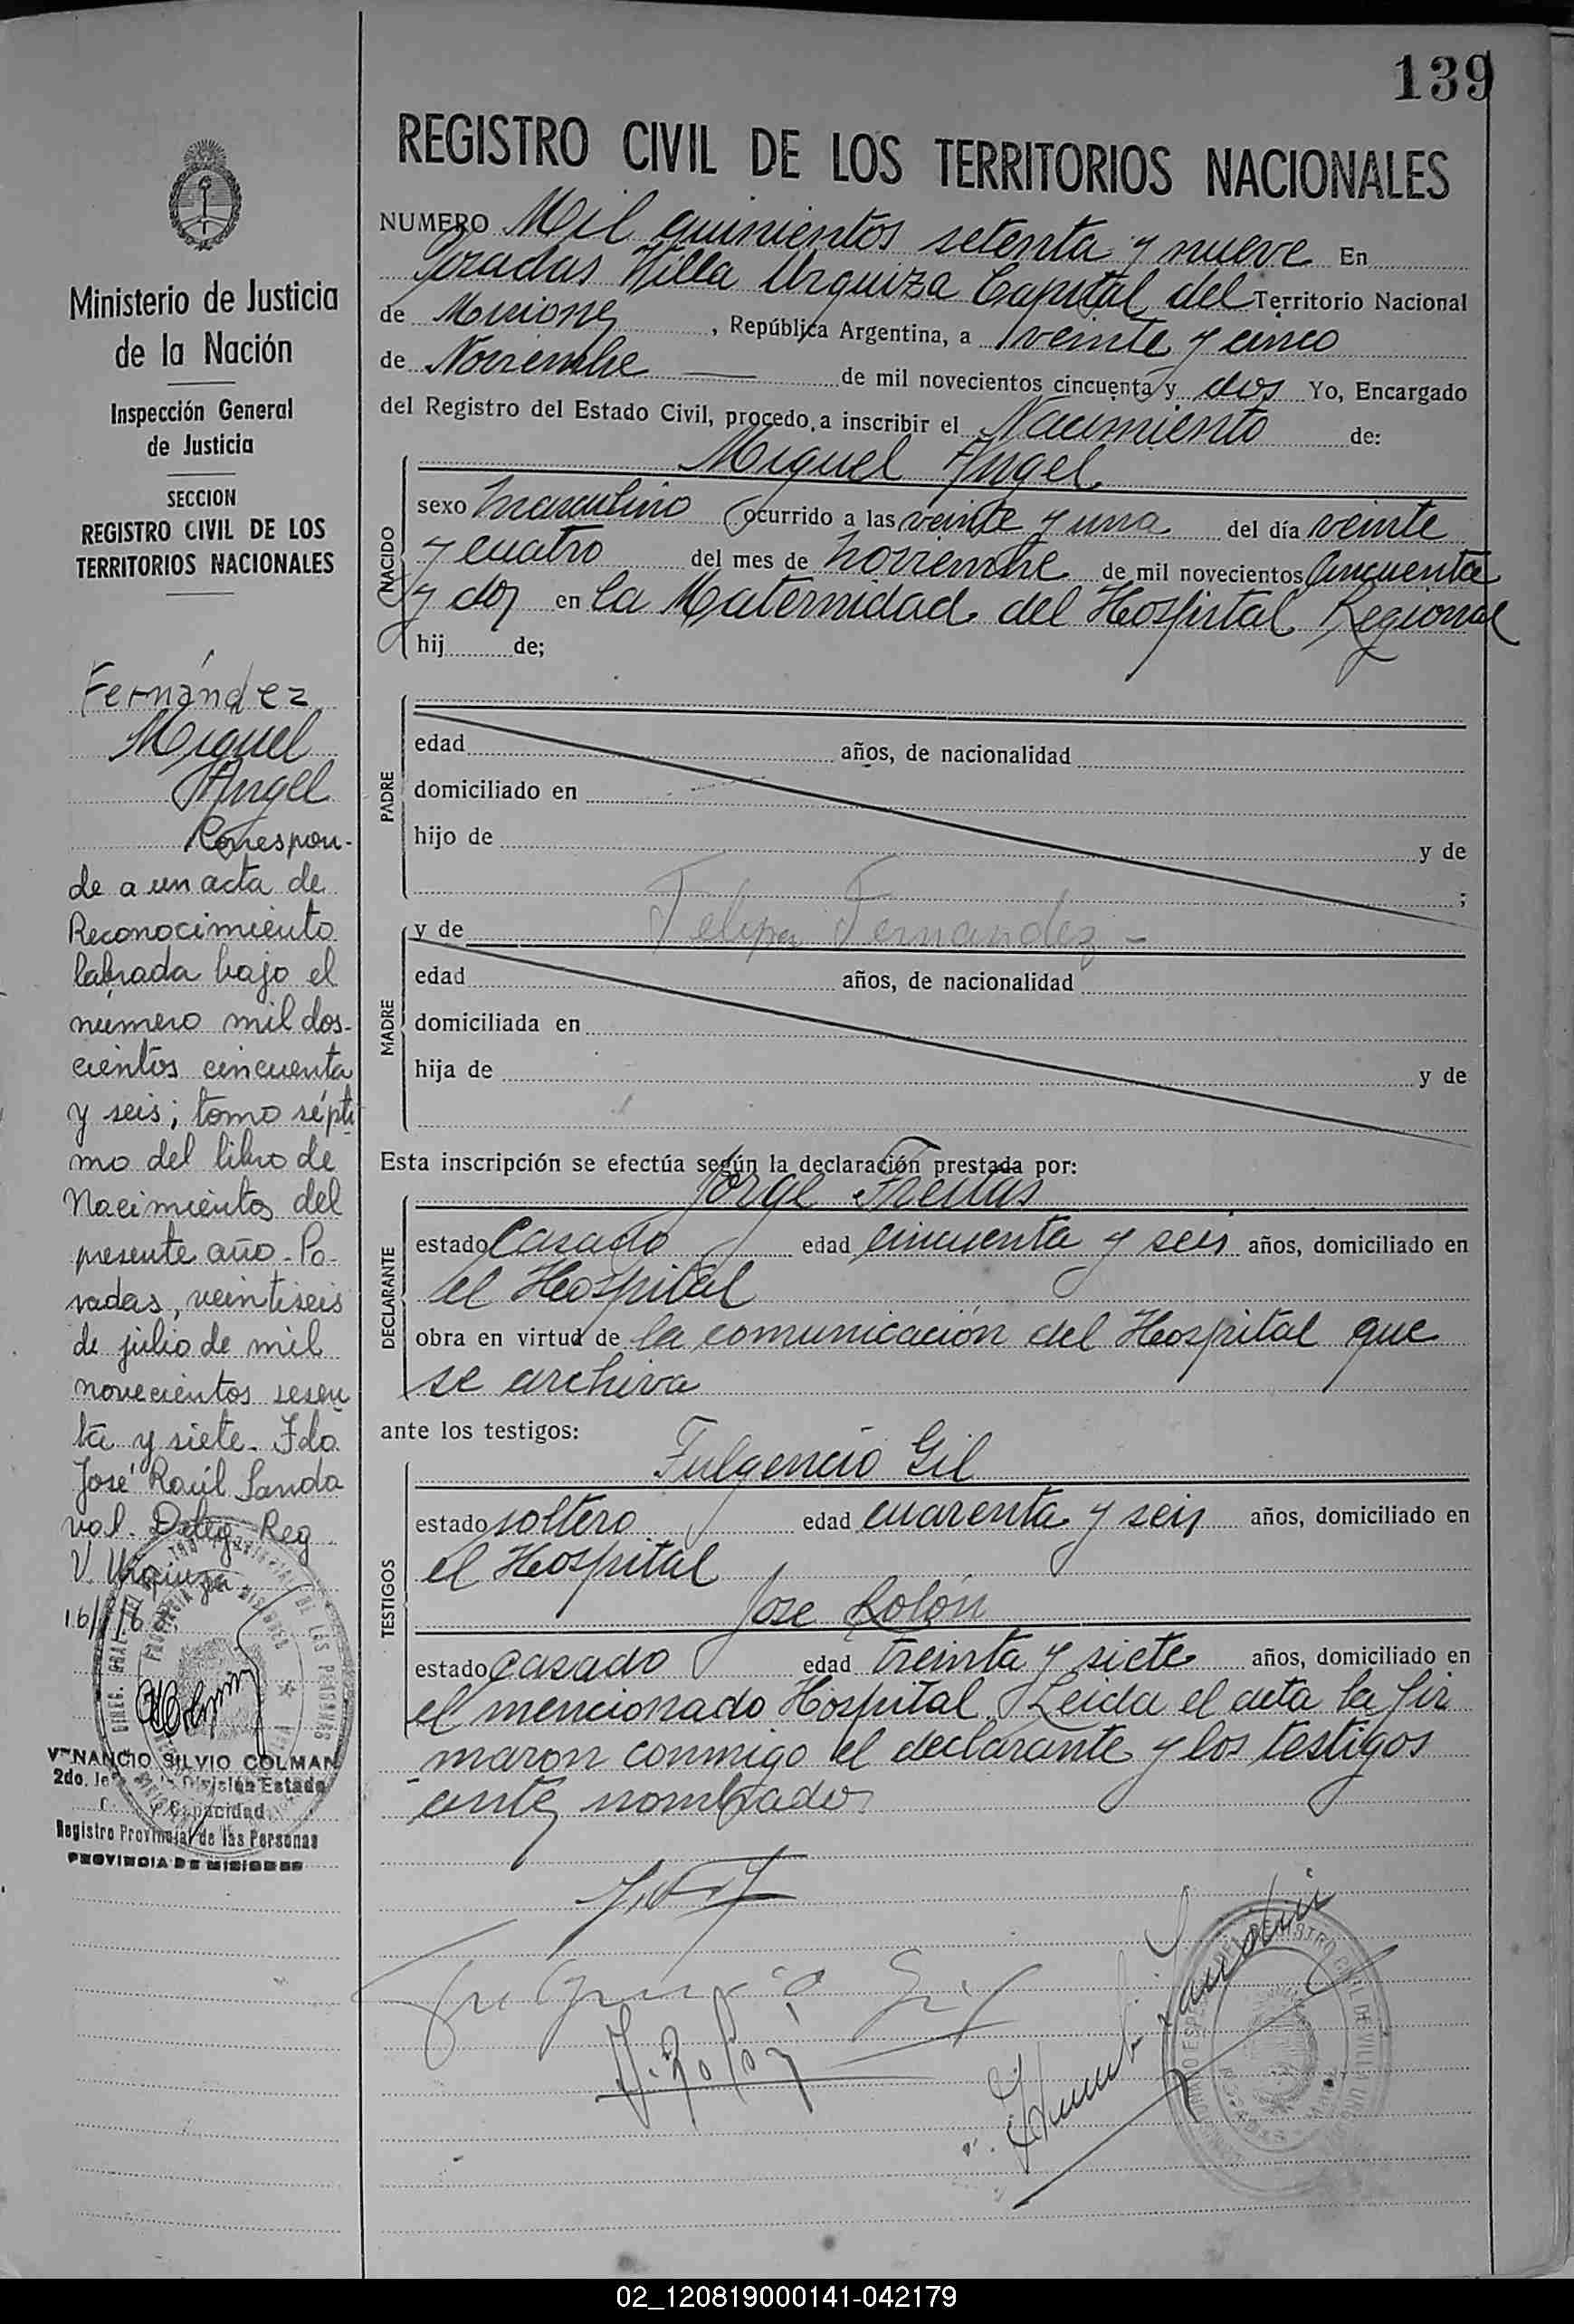 139
REGISTRO CIVIL DE LOS TERRITORIOS NACIONALES
NUMERO Mil quinientos setenta y nueve En
Posadas Villa Urquiza Capital del Territorio Nacional
de Misiones, República Argentina, a veinte y cinco
de Noviembre de mil novecientos cincuenta y dos Yo, Encargado
del Registro del Estado Civil, procedo a inscribir el Nacimiento de:
Miguel Angel
NACIDO
sexo masculino ocurrido a las veinte y una del día veinte
y cuatro del mes de noviembre de mil novecientos cincuenta
y dos en la Maternidad del Hospital Regional
hij de;
PADRE
edad años, de nacionalidad
domiciliado en
hijo de y de
;
MADRE
y de Felipa Fernandez -
edad años, de nacionalidad
domiciliada en
hija de y de
Esta inscripción se efectúa según la declaración prestada por:
Jorge Freitas
DECLARANTE
estado casado edad cincuenta y seis años, domiciliado en
el Hospital
obra en virtud de la comunicación del Hospital que
se archiva
ante los testigos:
Fulgencio Gil
TESTIGOS
estado soltero edad cuarenta y seis años, domiciliado en
el Hospital
Jose Rolón
estado casado edad treinta y siete años, domiciliado en
el mencionado Hospital. Leida el acta la fir
maron conmigo el declarante y los testigos
antes nombrados
Fulgencio Gil
J. Rolón
Ministerio de Justicia
de la Nación
Inspección General
de Justicia
SECCION
REGISTRO CIVIL DE LOS
TERRITORIOS NACIONALES
Fernández
Miguel
Angel
Correspon-
de a un acta de
Reconocimiento
labrada bajo el
número mil dos-
cientos cincuenta
y seis; tomo sépti
mo del libro de
Nacimientos del
presente año - Po-
sadas, veintiseis
de julio de mil
novecientos sesen
ta y siete. Fdo.
José Raúl Sando
val. Deleg. Reg
V. Urquiza
VENANCIO SILVIO COLMAN
2do. Jefe División Estado
y Capacidad
Registro Provincial de las Personas
PROVINCIA DE MISIONES
02_120819000141-042179